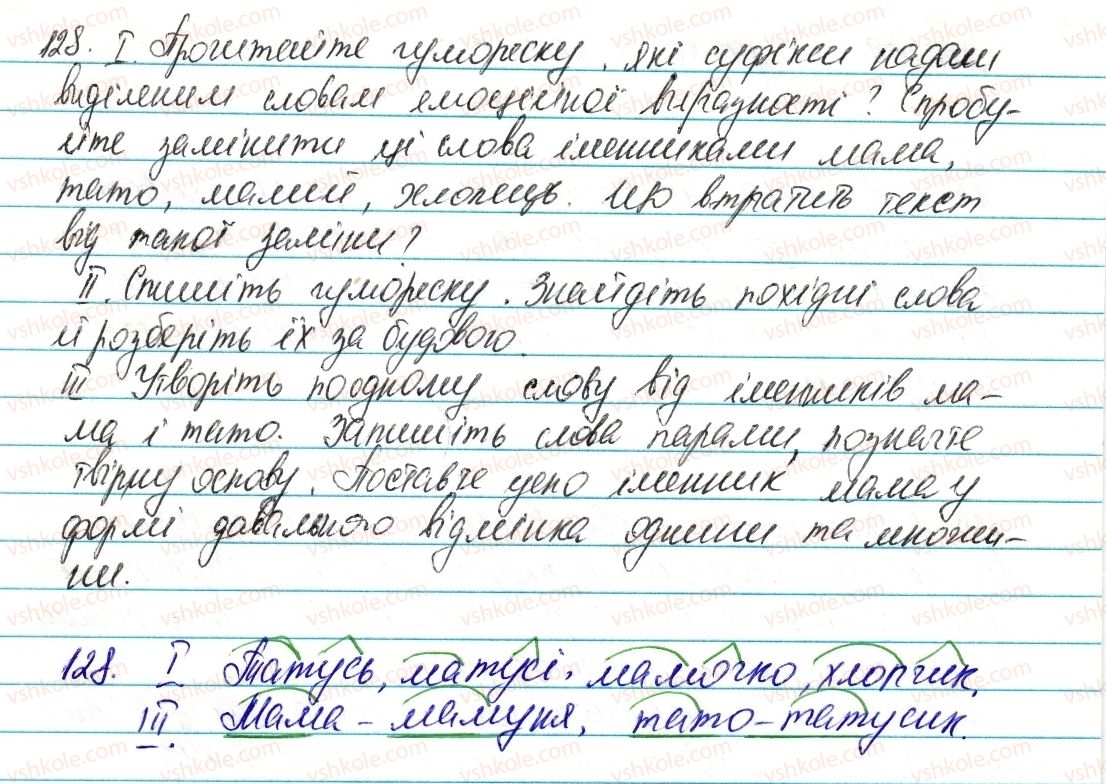 128. I. Прочитайте гумореску. Які суфікси надали
виділеним словам емоційної виразності? Спробу-
йте замінити ці слова іменниками мама,
тато, малий, хлопець. Що втратить текст
від такої заміни?
II. Спишіть гумореску. Знайдіть похідні слова
й розберіть їх за будовою.
III Утворіть по одному слову від іменників ма-
ма і тато. Запишіть слова парами, позначте
твірну основу. Поставте усно іменник мама у
формі давального відмінка однини та множи-
ни.
128. I Татусь, матусі, мамочко, хлопчик.
III. Мама – мамуня, тато – татусик.